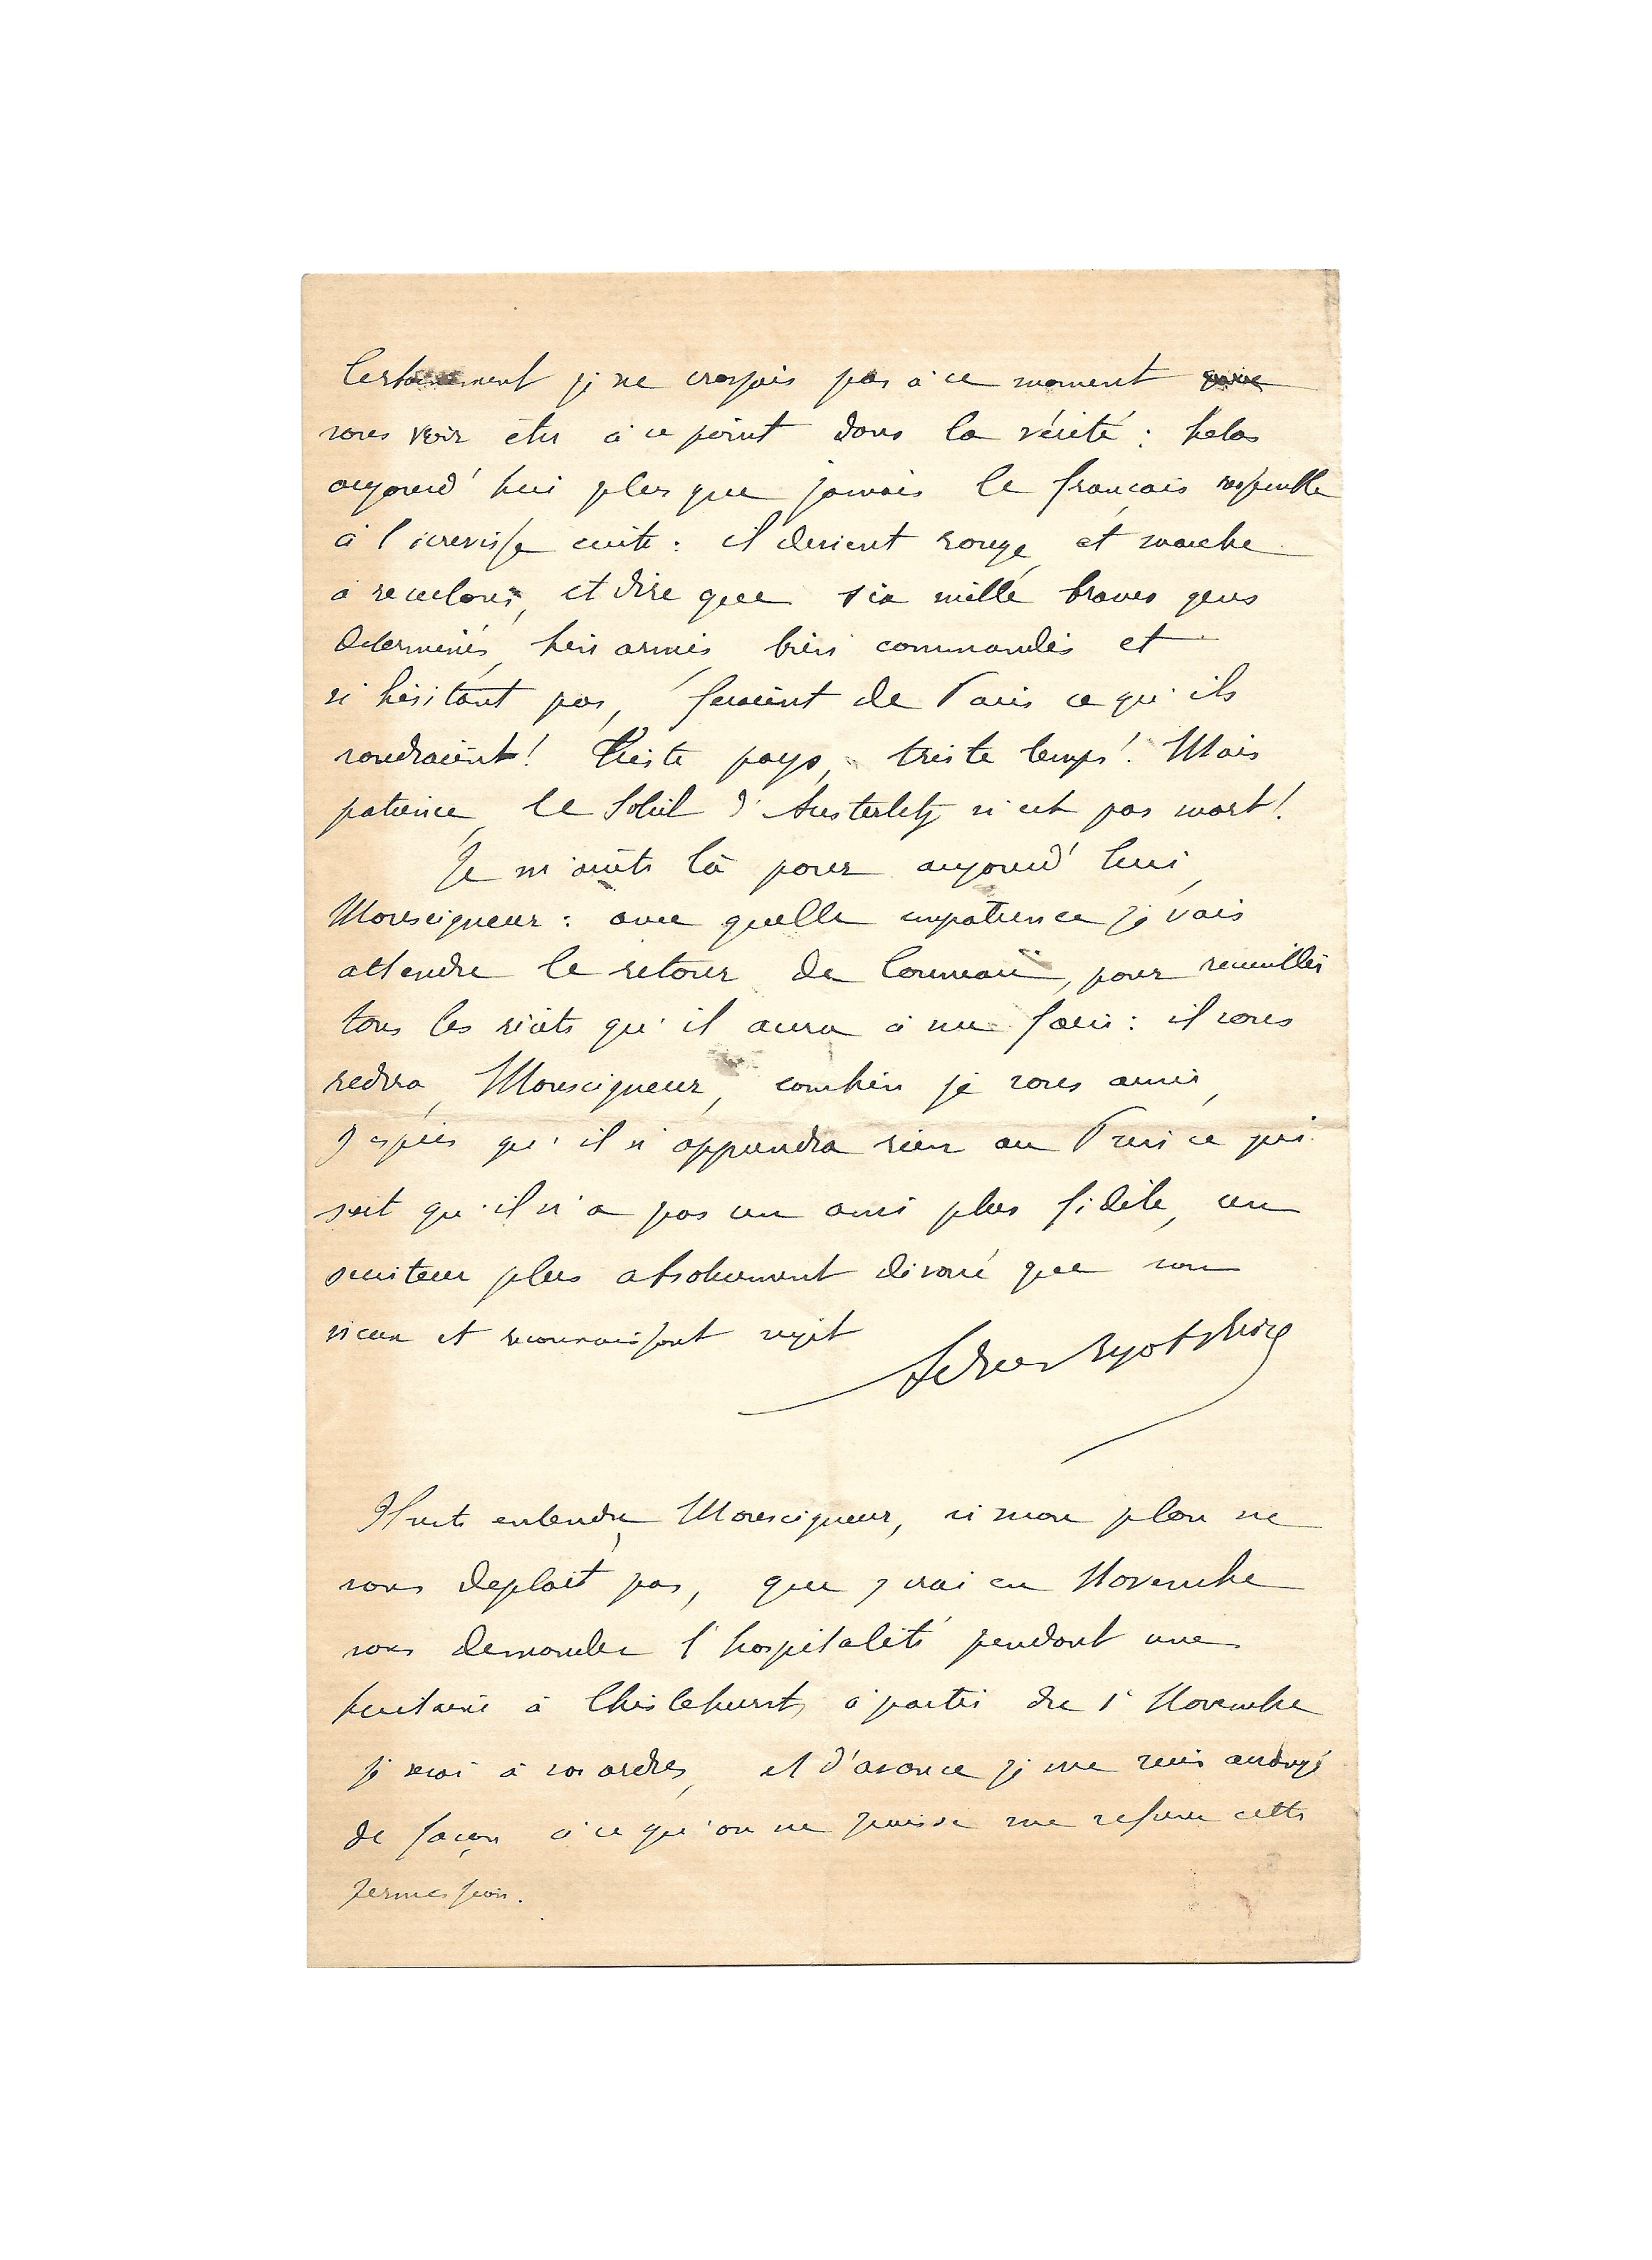 Certainement je ne croyais pas à ce moment
vous voir être à ce point dans la vérité : helas
aujourd'hui plus que jamais le français ressemble
à l'écrevisse cuite : il devient rouge et marche
à reculons, et dire que six mille braves gens
determinés, bien armés, bien commandés et
n'hésitant pas, feraient de Paris ce qu'ils
voudraient! Triste pays, triste temps! Mais
patience, le Soleil d'Austerlitz n'est pas mort!
Je m'arrête là pour aujourd'hui,
Monseigneur : avec quelle impatience je vais
attendre le retour de Conneau, pour recueillir
tous les récits qu'il aura à me faire : il vous
redira, Monseigneur, combien je vous aime,
j'espère qu'il n'apprendra rien au Prince qui
sait qu'il n'a pas un ami plus fidèle, un
serviteur plus absolument dévoué que son
vieux et reconnaissant sujet
Il est entendu, Monseigneur, si mon plan ne
vous deplait pas, que j'irai en Novembre
vous demander l'hospitalité pendant une
huitaine à Chislehurst, à partir du 1er Novembre
je serai à vos ordres, et d'avance je me suis arrangé
de façon à ce qu'on ne puisse me refuser cette
permission.